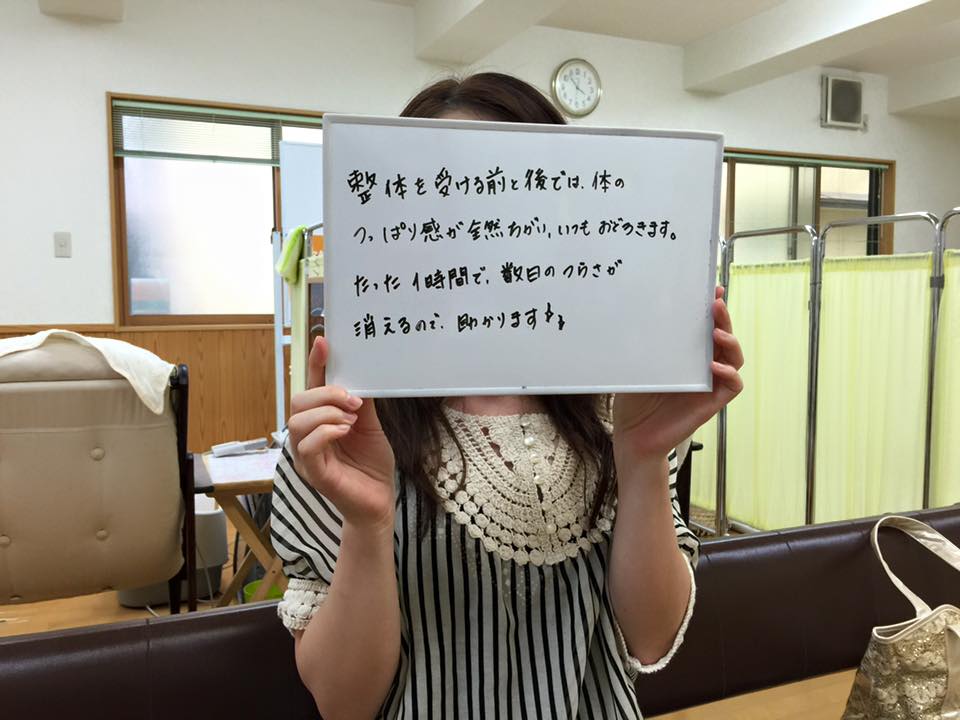 整体を受ける前と後では、体の
つっぱり感が全然ちがい、いつもおどろきます。
たった1時間で、数日のつらさが
消えるので、助かります!!